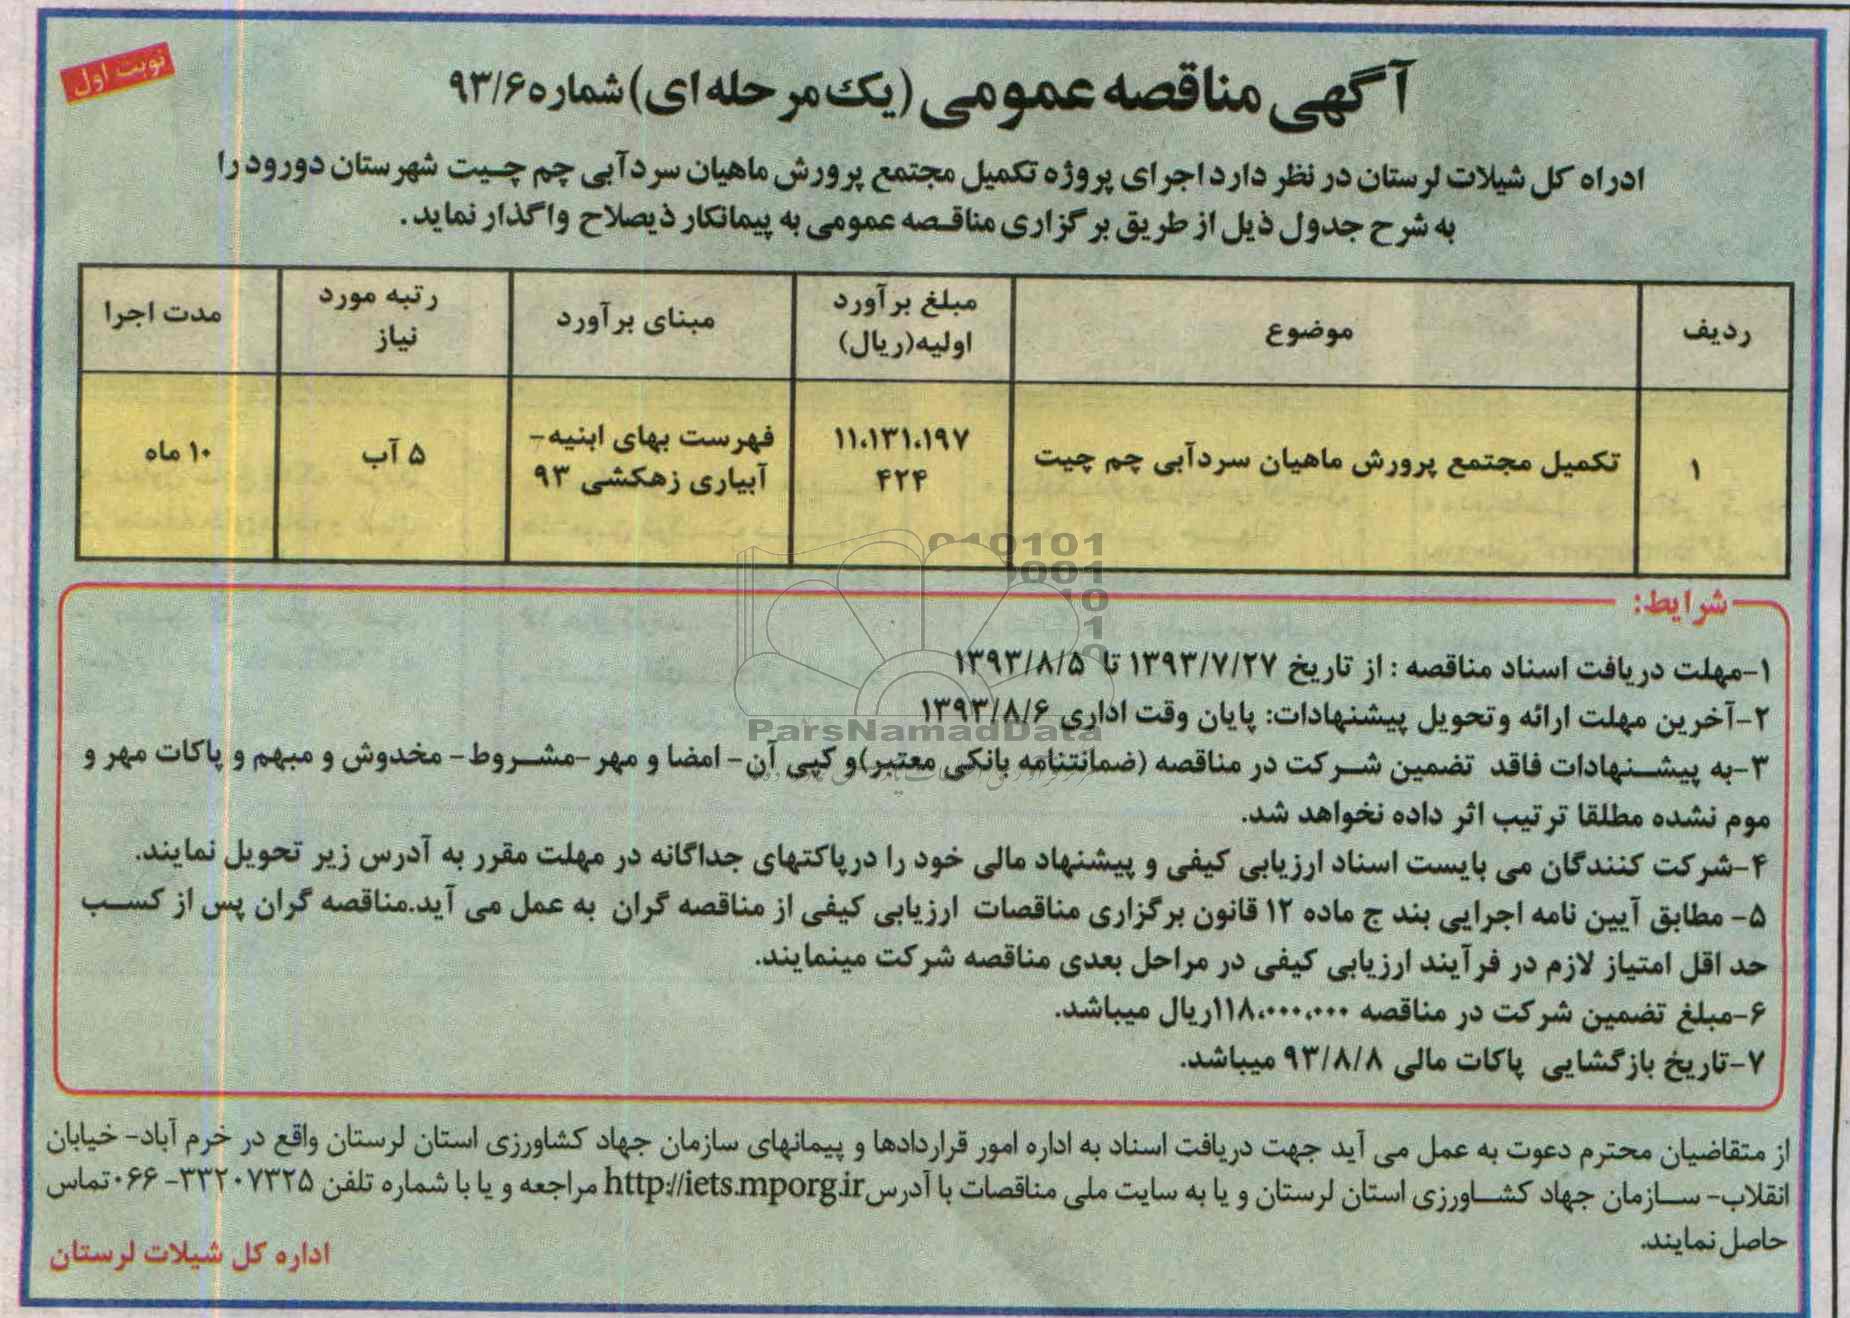 نوبت اول
آگهی مناقصه عمومی (یک مرحله ای) شماره ۹۳/۶
ادراه کل شیلات لرستان در نظر دارد اجرای پروژه تکمیل مجتمع پرورش ماهیان سردآبی چم چیت شهرستان دورود را
به شرح جدول ذیل از طریق برگزاری مناقصه عمومی به پیمانکار ذیصلاح واگذار نماید.
ردیف
موضوع
مبلغ برآورد
اولیه(ریال)
مبنای برآورد
رتبه مورد
نیاز
مدت اجرا
۱
تکمیل مجتمع پرورش ماهیان سردآبی چم چیت
۱۱،۱۳۱،۱۹۷
۴۲۴
فهرست بهای ابنیه-
آبیاری زهکشی ۹۳
۵ آب
۱۰ ماه
شرایط:
۱-مهلت دریافت اسناد مناقصه : از تاریخ ۱۳۹۳/۷/۲۷ تا ۱۳۹۳/۸/۵
۲-آخرین مهلت ارائه وتحویل پیشنهادات: پایان وقت اداری ۱۳۹۳/۸/۶
۳-به پیشنهادات فاقد تضمین شرکت در مناقصه (ضمانتنامه بانکی معتبر)و کپی آن- امضا و مهر-مشروط- مخدوش و مبهم و پاکات مهر و
موم نشده مطلقا ترتیب اثر داده نخواهد شد.
۴-شرکت کنندگان می بایست اسناد ارزیابی کیفی و پیشنهاد مالی خود را درپاکتهای جداگانه در مهلت مقرر به آدرس زیر تحویل نمایند.
۵- مطابق آیین نامه اجرایی بند ج ماده ۱۲ قانون برگزاری مناقصات ارزیابی کیفی از مناقصه گران به عمل می آید.مناقصه گران پس از کسب
حد اقل امتیاز لازم در فرآیند ارزیابی کیفی در مراحل بعدی مناقصه شرکت مینمایند.
۶-مبلغ تضمین شرکت در مناقصه ۱۱۸،۰۰۰،۰۰۰ریال میباشد.
۷-تاریخ بازگشایی پاکات مالی ۹۳/۸/۸ میباشد.
از متقاضیان محترم دعوت به عمل می آید جهت دریافت اسناد به اداره امور قراردادها و پیمانهای سازمان جهاد کشاورزی استان لرستان واقع در خرم آباد- خیابان
انقلاب- سازمان جهاد کشاورزی استان لرستان و یا به سایت ملی مناقصات با آدرس http://iets.mporg.ir مراجعه و یا با شماره تلفن ۳۳۲۰۷۳۲۵-۰۶۶ تماس
حاصل نمایند.
اداره کل شیلات لرستان
010101
001
10
1
0
ParsNamadData